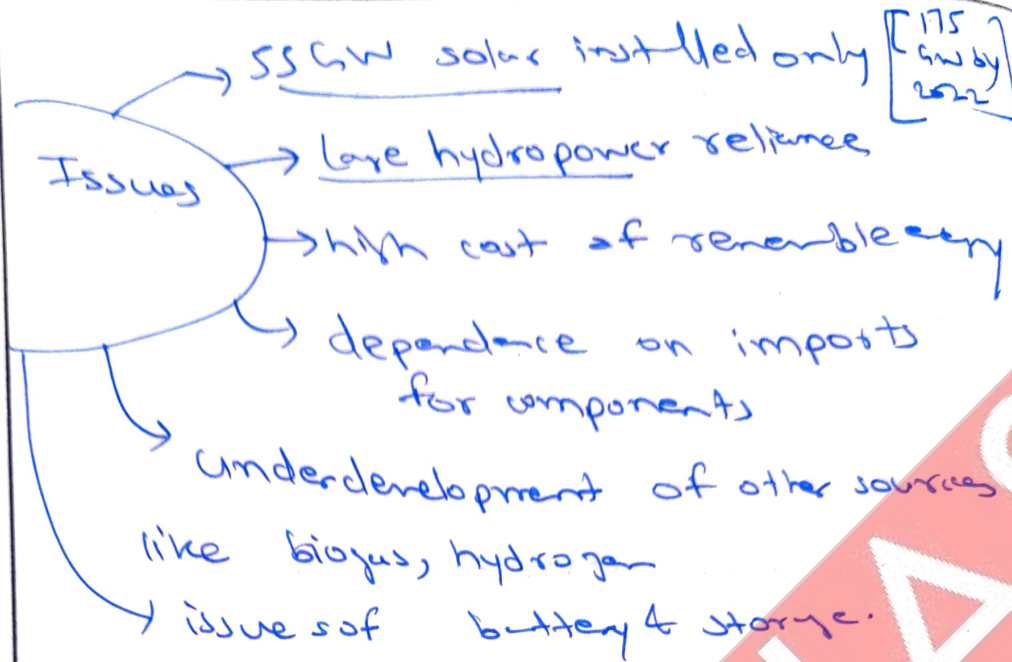 Issues
→ 55 GW solar installed only [175 GW by 2022
→ Large hydropower reliance
→ high cost of renewable energy
→ dependence on imports
for components
→ underdevelopment of other sources
like biogas, hydrogen
→ issues of battery & storage.